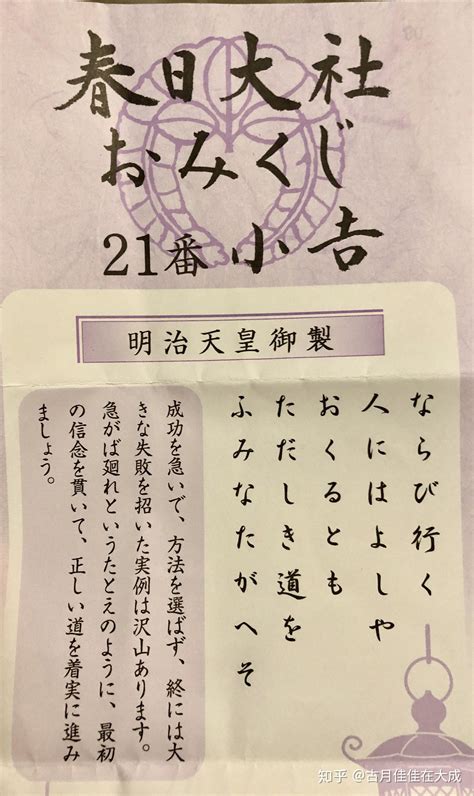 春日大社
おみくじ
21番 小吉
明治天皇御製
ならび行く
人にはよしや
おくるとも
ただしき道を
ふみなたがへそ
成功を急いで、方法を選ばず、終には大
きな失敗を招いた実例は沢山あります。
急がば廻れというたとえのように、最初
の信念を貫いて、正しい道を着実に進み
ましょう。
知乎 @古月佳佳在大成